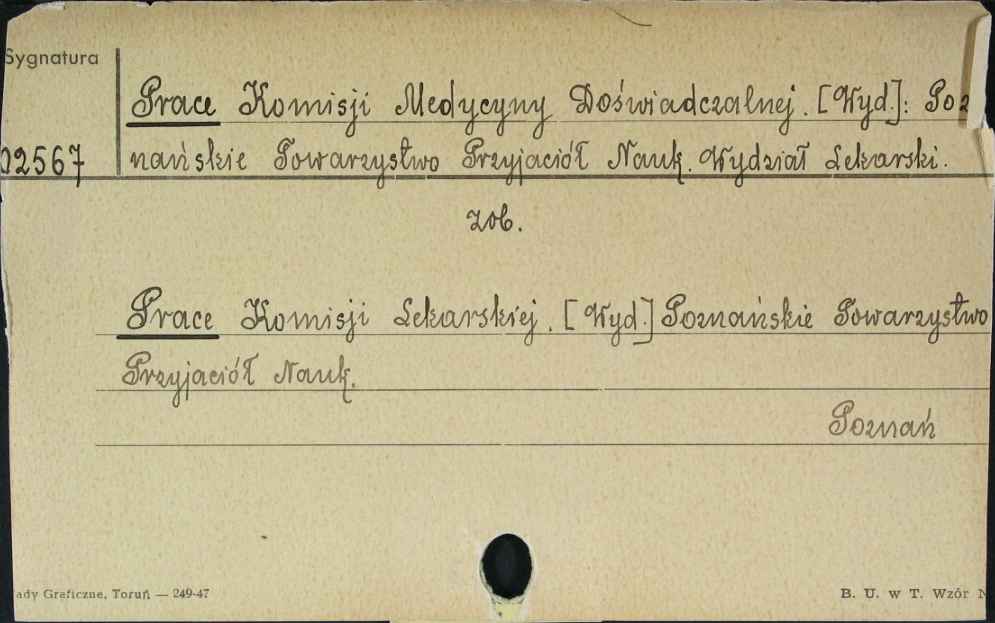 Sygnatura
Prace Komisji Medycyny Doświadczalnej. [Wyd.]: Poz
02567 nańskie Towarzystwo Przyjaciół Nauk. Wydział Lekarski.
zob.
Prace Komisji Lekarskiej. [Wyd.] Poznańskie Towarzystwo
Przyjaciół Nauk.
Poznań
ady Graficzne, Toruń — 249-47 B. U. w T. Wzór N